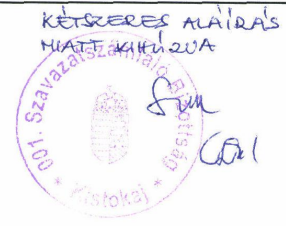 KÉTSZERES ALÁÍRÁS
MIATT KIHÚZVA
001. Szavazatszámláló Bizottság
* Kistokaj *